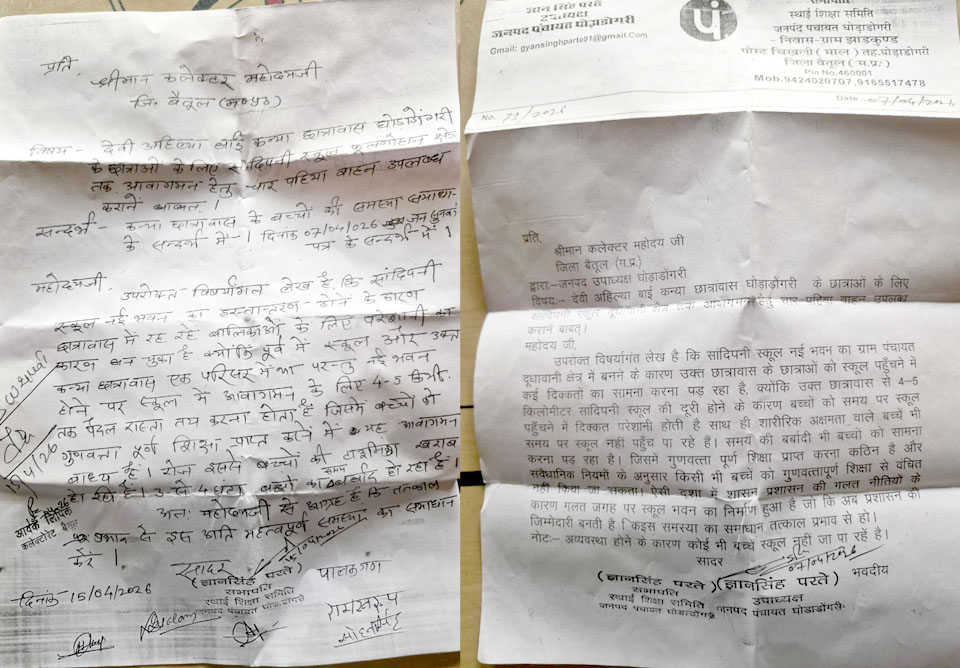 प्रति,
श्रीमान कलेक्टर महोदयजी
जि. बैतूल (म०प्र०)
विषय - देवी अहिल्या बाई कन्या छात्रावास घोड़ाडोंगरी
के छात्राओं के लिए सांदिपनी स्कूल
तक आवागमन हेतु चार पहिया वाहन उपलब्ध
कराने बाबत।
सन्दर्भ - कन्या छात्रावास के बच्चों की समस्या समाधा-
के सन्दर्भ में - । दिनांक 07/04/026
पत्र के सन्दर्भ में।
महोदयजी,
उपरोक्त विषयांगत लेख है कि सांदिपनी
स्कूल नई भवन का हस्तान्तरण होने के कारण
छात्रावास में रह रहे बालिकाओं के लिए परेशानी का
कारण बन चुका है क्योंकि पूर्व में स्कूल और उक्त
कन्या छात्रावास एक परिसर में था परन्तु नई भवन
होने पर स्कूल में आवागमन के लिए 4-5 किमी.
तक पैदल रास्ता तय करना होता है जिसमें बच्चों को
गुणवत्ता पूर्ण शिक्षा प्राप्त करने में यह आवागमन
बाध्य है। रोज इससे बच्चों की टाइमिंग खराब
हो रही है। 3 से 4 घंटा बच्चों का समय बर्बाद हो रहा है।
अतः महोदयजी से आग्रह है कि तत्काल
प्रभाव से इस अति महत्वपूर्ण समस्या का समाधान
करें।
सादर
(ज्ञानसिंह परते)
सभापति
स्थाई शिक्षा समिति
जनपद पंचायत घोड़ाडोंगरी
पालकगण
रामस्वरूप
दिनांक 15/04/2026
कलेक्टोरेट बैतूल
ज्ञान सिंह परते
उपाध्यक्ष
जनपद पंचायत घोड़ाडोंगरी
Gmail: gyansinghparte91@gmail.com
पं
सभापति
स्थाई शिक्षा समिति
जनपद पंचायत घोड़ाडोंगरी
- निवास-ग्राम झाडकुण्ड
पोस्ट चिखली (माल) तह.घोड़ाडोगरी
जिला बैतूल (म.प्र.)
Pin No.460001
Mob.9424020707,9165517478
No. 72/2026
Date 07/04/2026
प्रति,
श्रीमान कलेक्टर महोदय जी
जिला बैतूल (म.प्र.)
द्वारा:-जनपद उपाध्यक्ष घोड़ाडोंगरी
विषय:- देवी अहिल्या बाई कन्या छात्रावास घोड़ाडोंगरी के छात्राओं के लिए
सांदिपनी स्कूल दूधावानी क्षेत्र तक आवागमन हेतु चार पहिया वाहन उपलब्ध
कराने बाबत्।
महोदय जी,
उपरोक्त विषयांगत लेख है कि सांदिपनी स्कूल नई भवन का ग्राम पंचायत
दूधावानी क्षेत्र में बनने के कारण उक्त छात्रावास के छात्राओं को स्कूल पहुँचने में
कई दिक्कतों का सामना करना पड़ रहा है, क्योंकि उक्त छात्रावास से 4-5
किलोमीटर सांदिपनी स्कूल की दूरी होने के कारण बच्चों को समय पर स्कूल
पहुँचने में दिक्कत परेशानी होती है साथ ही शारीरिक अक्षमता वाले बच्चें भी
समय पर स्कूल नही पहुँच पा रहे हैं। समय की बर्बादी भी बच्चों को सामना
करना पड़ रहा है। जिसमें गुणवत्ता पूर्ण शिक्षा प्राप्त करना कठिन है और
संवैधानिक नियमों के अनुसार किसी भी बच्चें को गुणवत्तापूर्ण शिक्षा से वंचित
नही किया जा सकता। ऐसी दशा में शासन प्रशासन की गलत नीतियों के
कारण गलत जगह पर स्कूल भवन का निर्माण हुआ है जो कि अब प्रशासन की
जिम्मेदारी बनती है कि इस समस्या का समाधान तत्काल प्रभाव से हो।
नोट:- अव्यवस्था होने के कारण कोई भी बच्चें स्कूल नही जा पा रहें है।
सादर
07/04/026
भवदीय
(ज्ञानसिंह परते) (ज्ञानसिंह परते)
सभापति उपाध्यक्ष
स्थाई शिक्षा समिति जनपद पंचायत घोड़ाडोंगरी
जनपद पंचायत घोड़ाडोंगरी